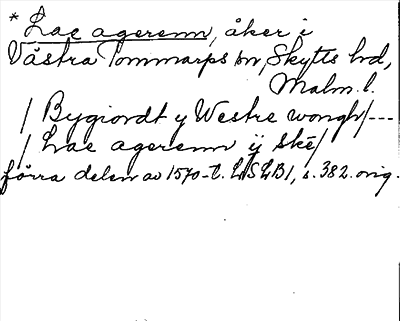 * Lae agerenn, åker i
Västra Tommarps sn, Skytts hd,
Malm. l.
/ Bygiordt y Westre wongh/---
/ Lae agerenn ÿ skè/
förra delen av 1570-t. LSLB1, s. 382. orig.